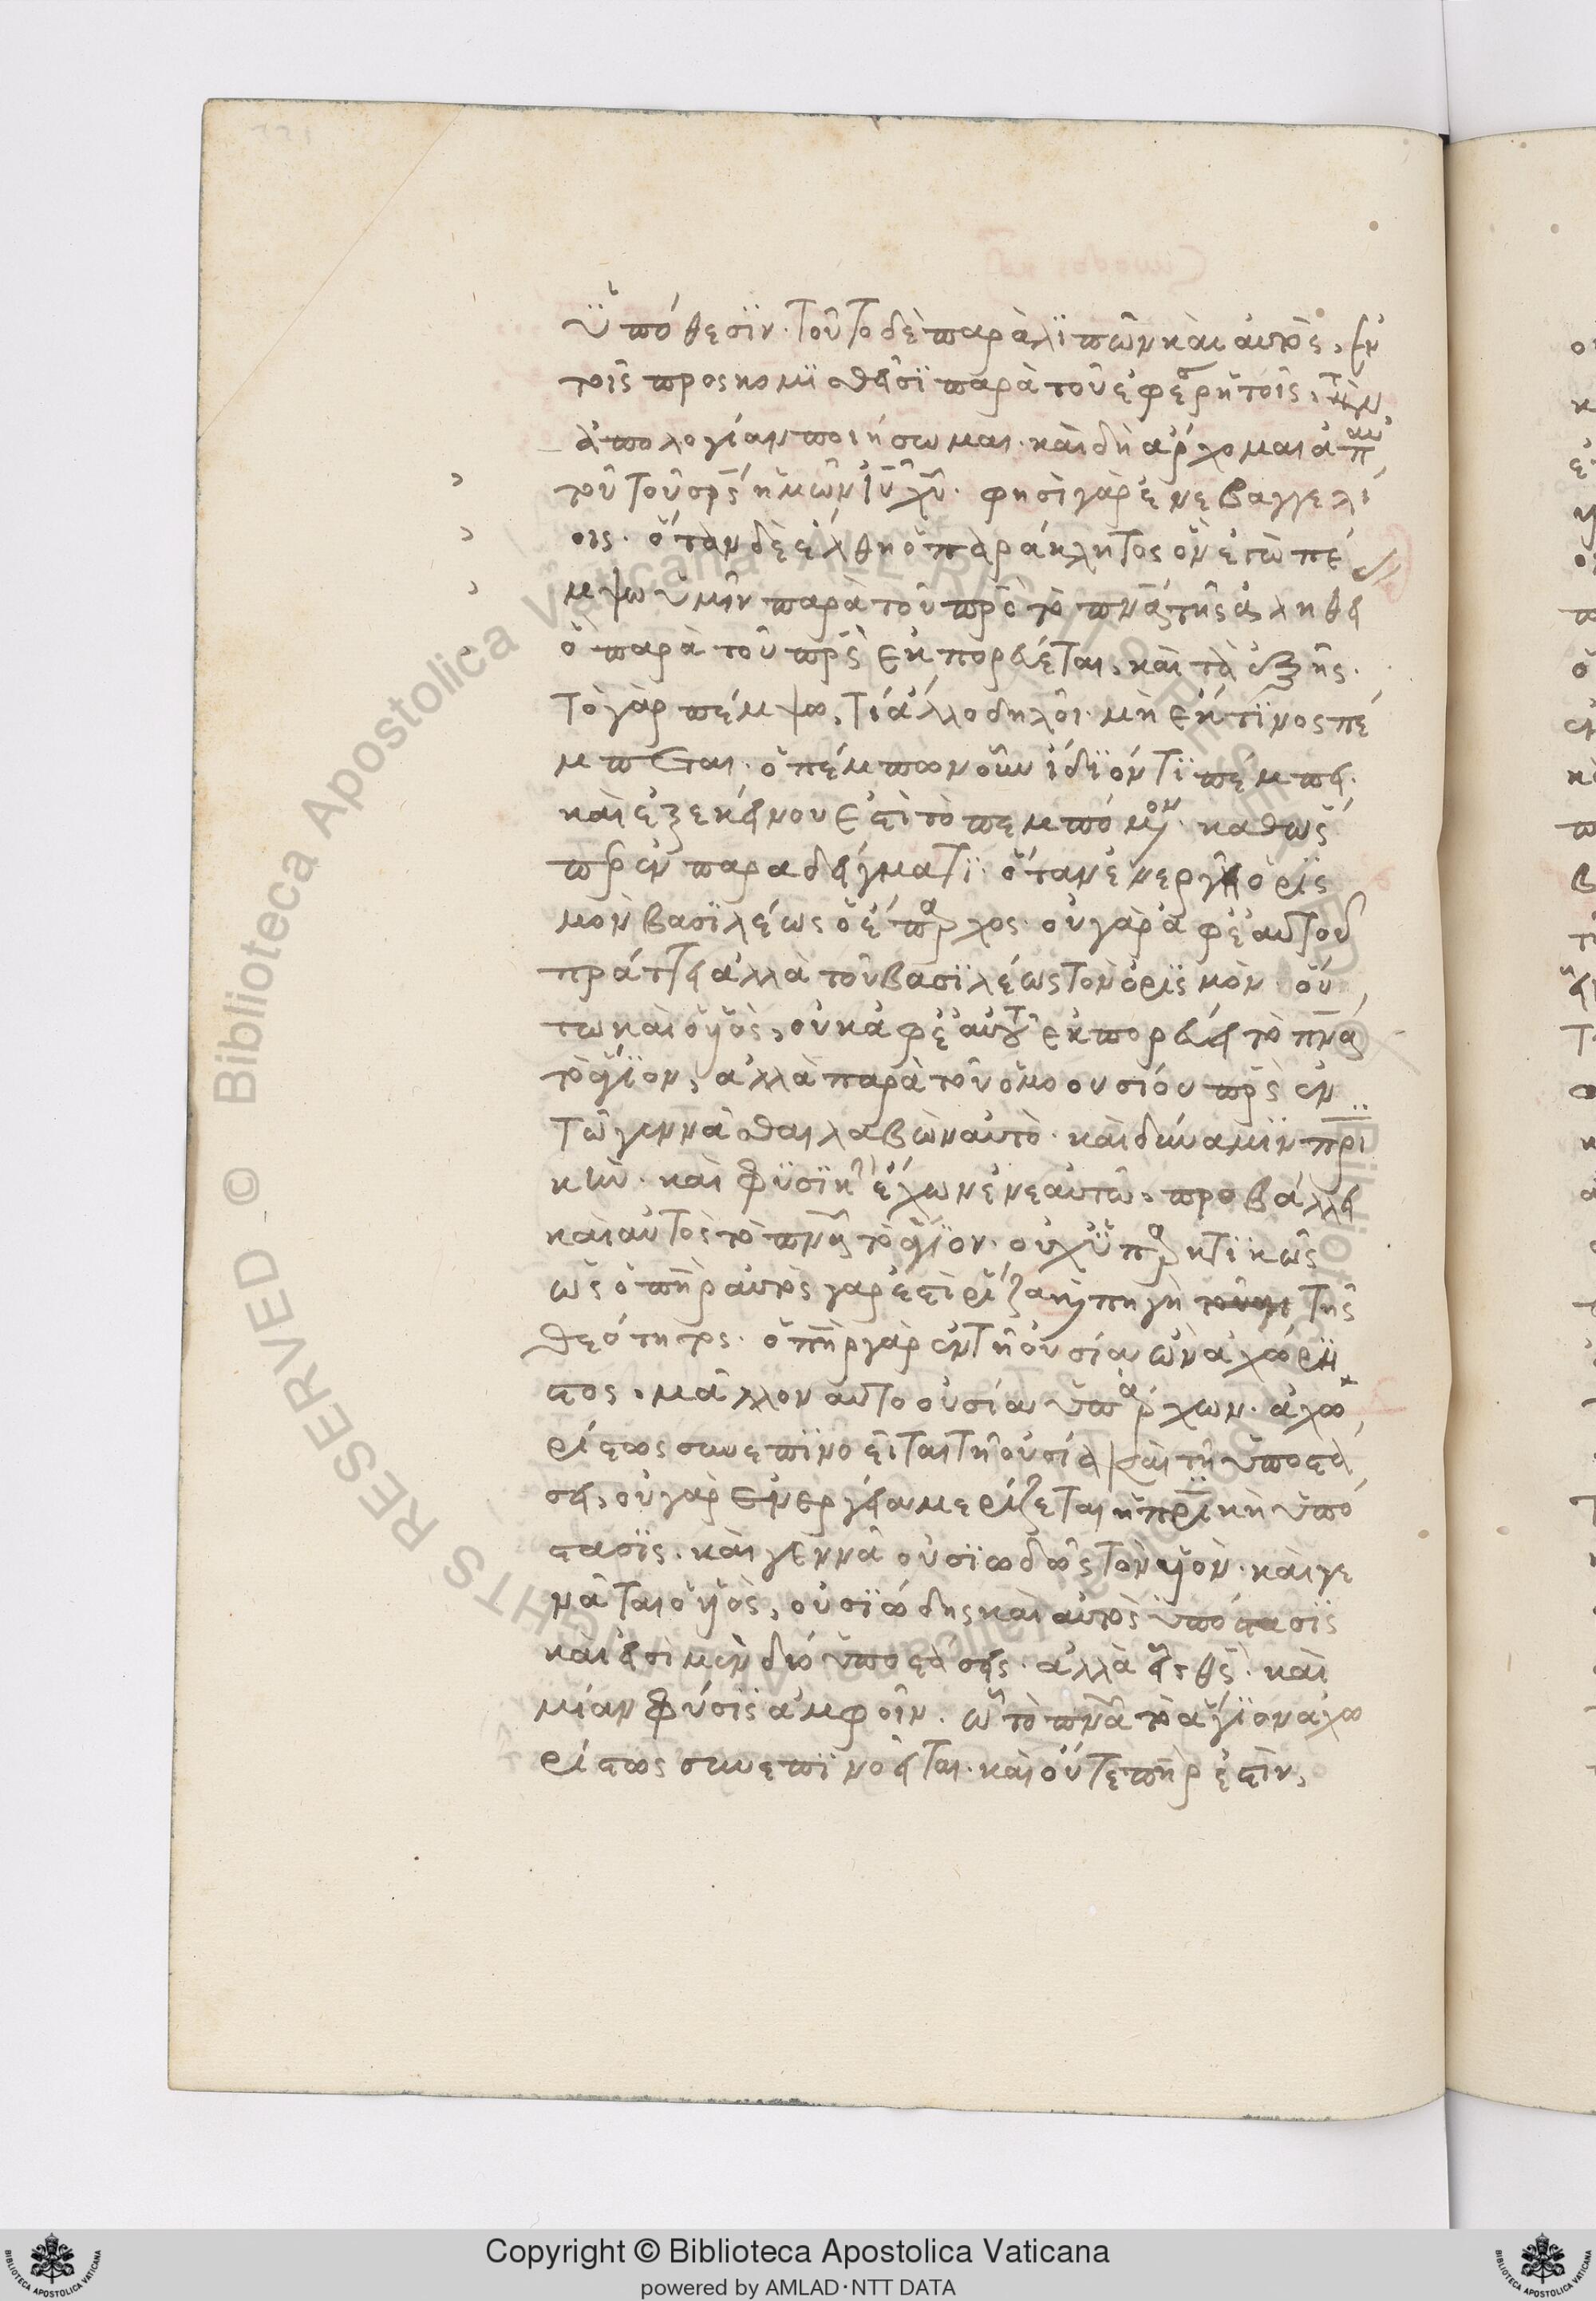 ὑπόθεσϊν· τοῦτο δὲ παραλϊπὼν καὶ αὐτὸς, ἐν
τοῖς προσκομϊσθεῖσϊ παρὰ τοῦ ἐφέσου ῥητοῖς, τὴν
ἀπολογίαν ποιήσωμαι. καὶ δὴ ἄρχομαι ἀπ
τοῦ σρς ἡμῶν ἰυ χυ. φησὶ γὰρ ἐν εὐαγγελί
οις. ὅταν δὲ ἔλθη ὁ παράκλητος ὃν ἐγὼ πέ
μψω ὑμῖν παρὰ τοῦ πρς τὸ πνα τῆς ἀληθεί
ὃ παρὰ τοῦ πρς ἐκπορεύεται, καὶ τὰ ἑξῆς.
τὸ γὰρ πέμψω, τί ἄλλο δηλοῖ. μὴ ἔκ τϊνος πέ
μπεται. ὁ πέμπων οὖν ἰδϊόν τϊ πέμπει.
καὶ ἐξ ἐκείνου ἐστὶ τὸ πεμπόμενον. καθὼς
ἐν παραδείγματϊ. ὅταν ἐνεργῆ ὁρϊς
μὸν βασϊλέως ὁ ἔπαρχος. οὐ γὰρ ἀφ' ἑαυτοῦ
πράττει ἀλλὰ τοῦ βασϊλέως τὸν ὁρϊσμὸν. οὕ
τω καὶ ὁ υἱὸς, οὐκ ἀφ' ἑαυτοῦ ἐκπορεύει τὸ πνα
τὸ ἅγϊον, ἀλλὰ παρὰ τοῦ ὁμοουσίου πρς ἐν
τῶ γεννᾶσθαι λαβὼν αὐτὸ. καὶ δύναμϊν πρϊ
κὴν. καὶ φϋσϊκὴν ἔχων ἐν ἑαυτῶ, προβάλλει
καὶ αὐτὸς τὸ πνα τὸ ἅγϊον. οὐχ ὑπαρκτϊκῶς
ὡς ὁ πηρ αὐτὸς γάρ ἐστὶ ῥίζα καὶ πηγὴ τῆς
θεότητος. ὁ πηρ γὰρ ἐν τῆ οὐσία ὢν ἀχώρη
στος, μᾶλλον αὐτοουσία ὑπάρχων. ἀχω
ρίστως συνεπϊνοεῖται τῆ οὐσία καὶ τῆ ὑποστά
σει, οὐ γὰρ ἐνεργεία μερίζεται ἡ πρϊκὴ ὑπό
στασϊς. καὶ γεννᾶ οὐσϊωδῶς τὸν υἱὸν. καὶ γε
νᾶται ὁ υἱὸς, οὐσϊώδης καὶ αὐτὸς ὑπόστασϊς
καὶ εἰσὶ μὲν δύο ὑποστάσεις. ἀλλὰ εἷς θς. καὶ
μίαν φύσϊς ἀμφοῖν. ὧ τὸ πνα τὸ ἅγϊον ἀχω
ρίστως συνεπϊνοεῖται. καὶ οὔτε πηρ ἐστὶν,
Copyright © Biblioteca Apostolica Vaticana
powered by AMLAD·NTT DATA